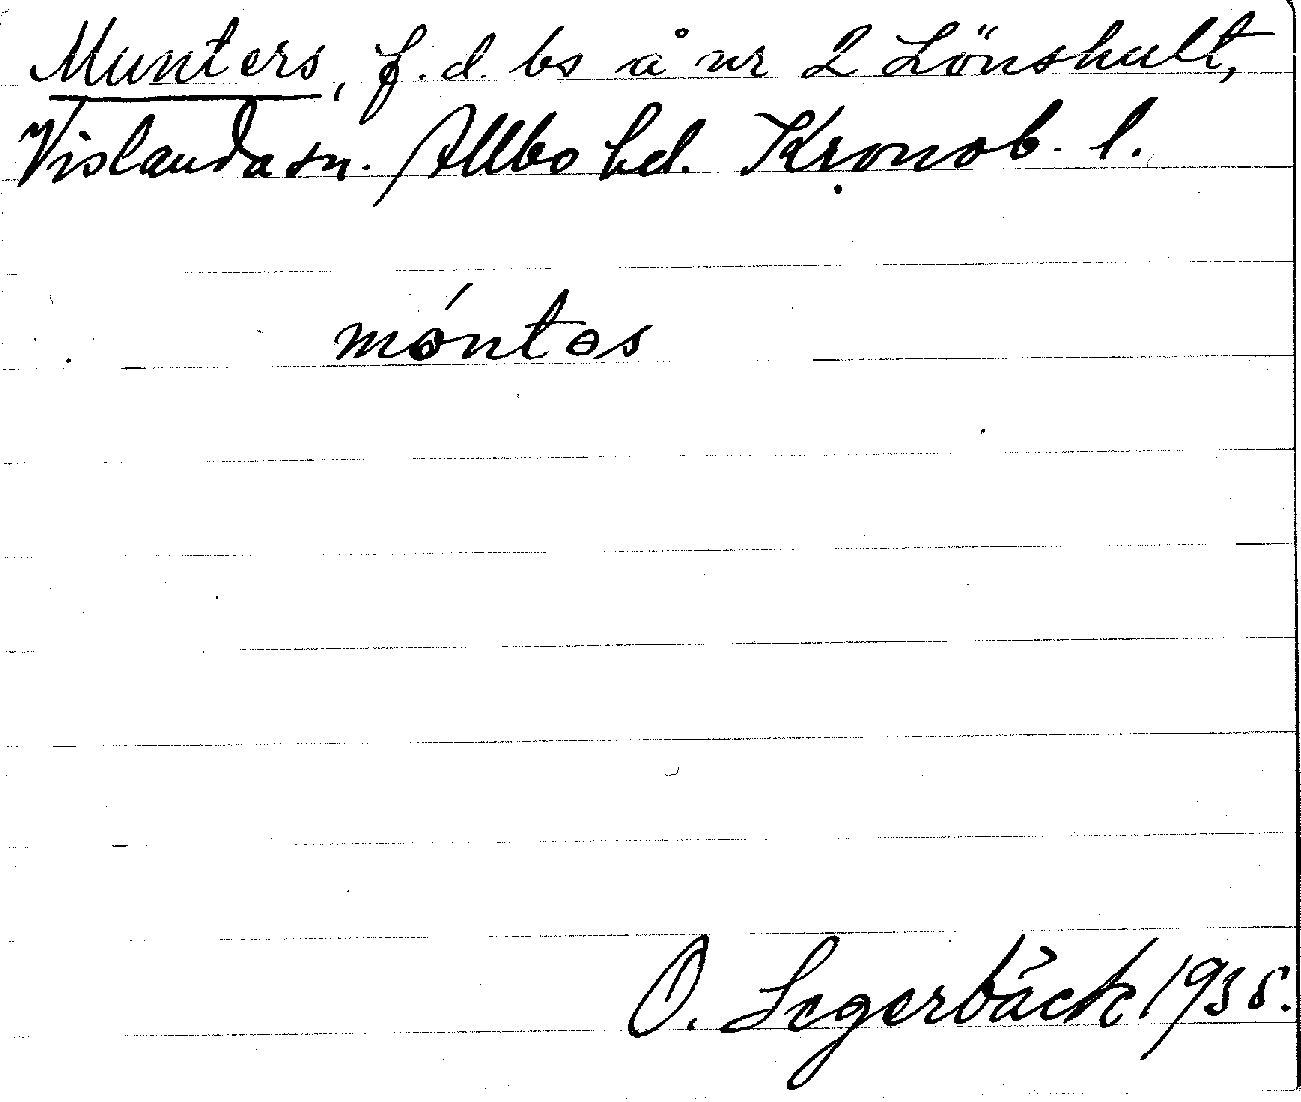 Munters, f.d. bs å nr 2 Lönshult,
Vislanda sn. Allbo hd. Kronob. l.
móntɵs
O. Segerbäck 1935.